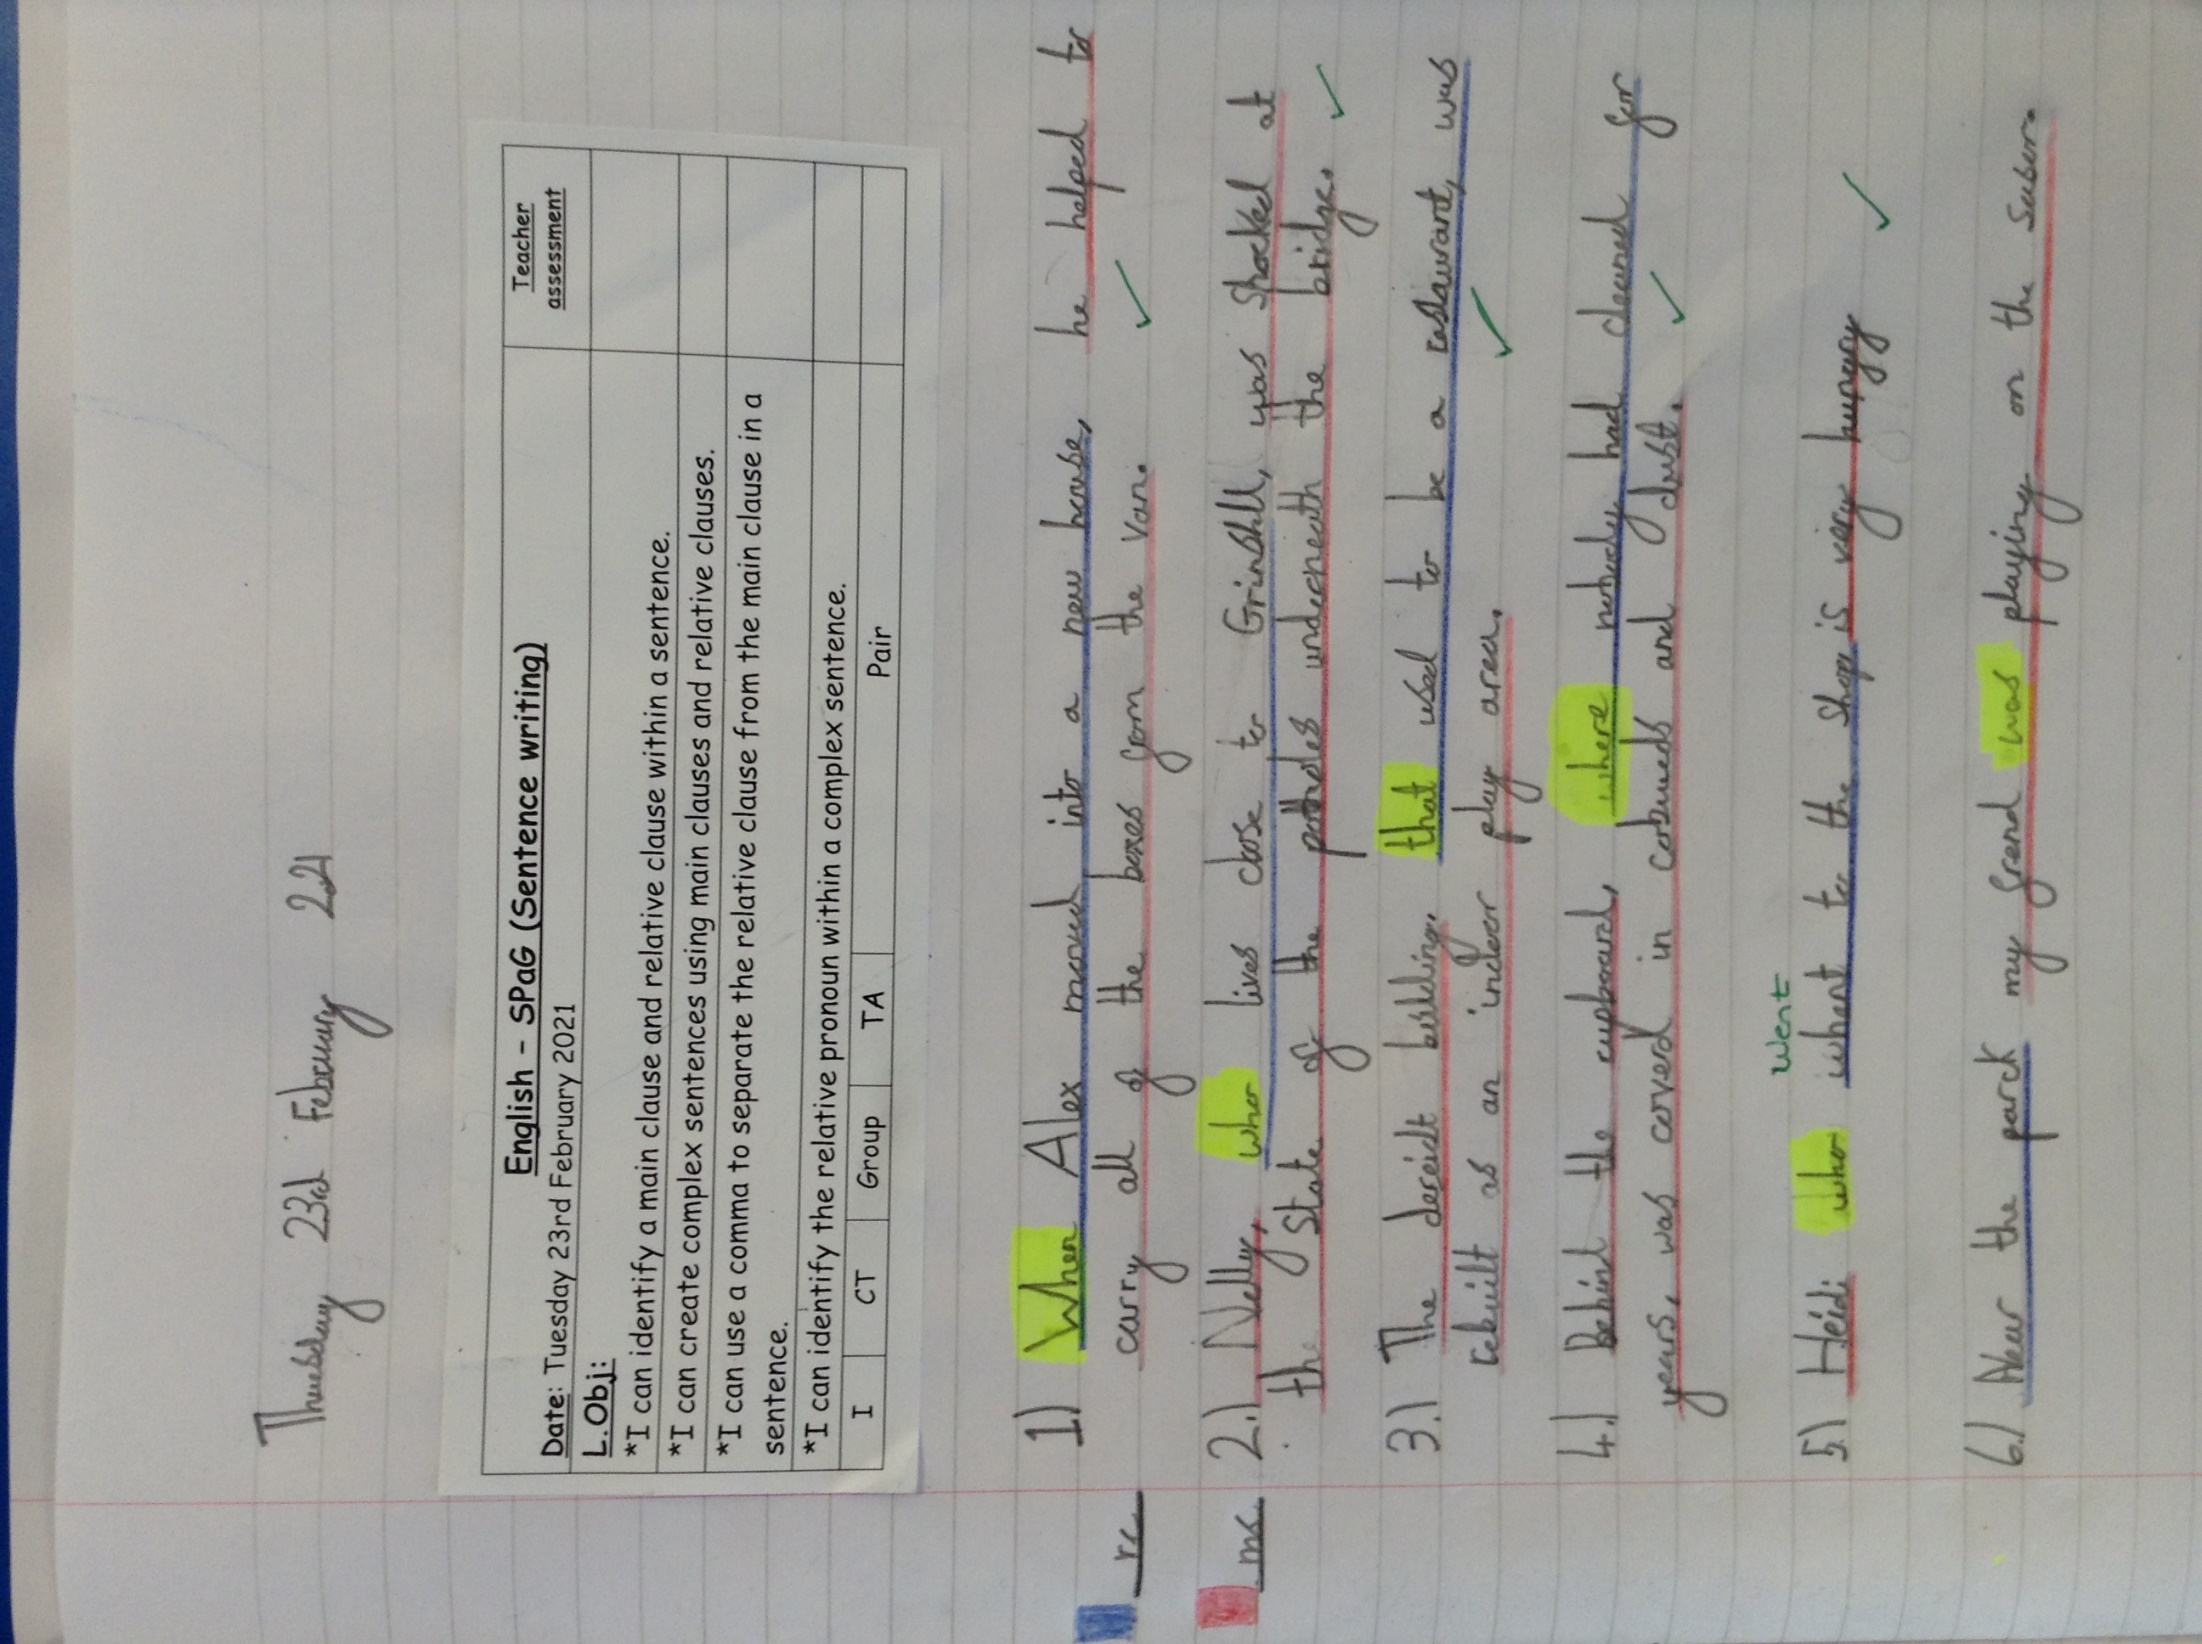 Thuesday 23rd February 2021
English - SPaG (Sentence writing)
Teacher assessment
Date: Tuesday 23rd February 2021
L.Obj:
*I can identify a main clause and relative clause within a sentence.
*I can create complex sentences using main clauses and relative clauses.
*I can use a comma to separate the relative clause from the main clause in a
sentence.
*I can identify the relative pronoun within a complex sentence.
I CT Group TA Pair
rc
mc
1) When Alex moved into a new house, he helped to
carry all of the boxes from the van.
2.) Nelly, who lives close to Grinshll, was shocked at
the state of the potholes underneath the bridge.
3.) The dereict building, that used to be a restaurant, was
rebuilt as an indoor play area.
4.) Behind the cupboard, where nobody had cleaned for
years, was coverd in cobweds and dust.
went
5.) Heidi who whent to the shop is very hungry
6.) Near the parck my frend was playing on the